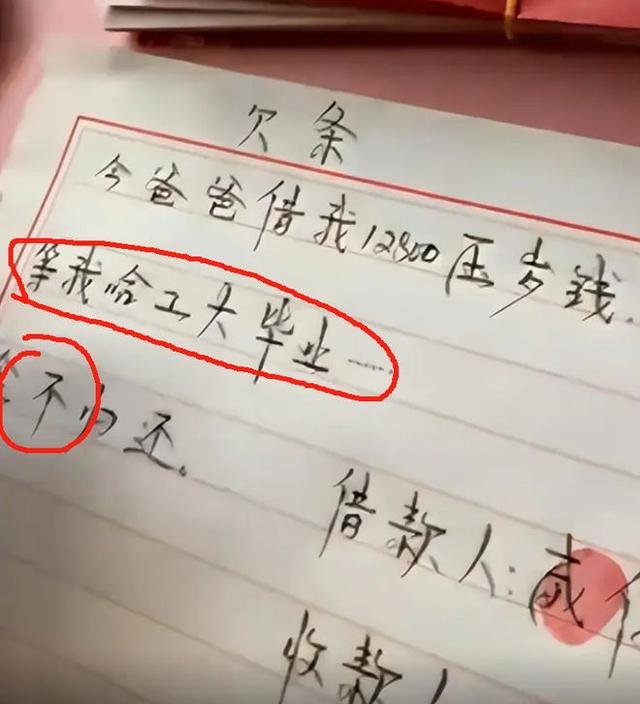 欠条
今爸爸借我12800压岁钱.
等我哈工大毕业一
不归还.
借款人:戚
收款人